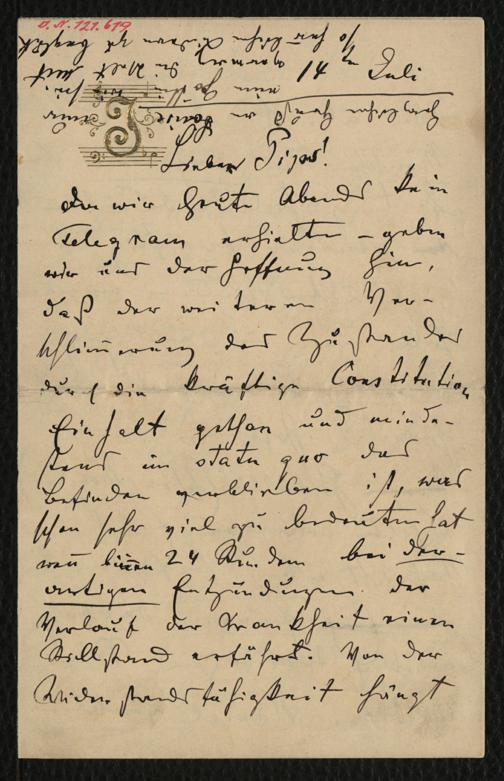 J. N. 121.679
14 Juli
Lieber Pipo!
Da wir heute Abends kein
Telegram erhielten – geben
wir uns der Hoffnung hin,
daß der weiteren Ver-
schlimmerung des Zustandes
durch die kräftige Constitution
Einhalt gethan und minde-
stens im statu quo das
Befinden verblieben ist, was
schon sehr viel zu bedeuten hat
wenn binnen 24 Stunden bei der-
artigen Entzündungen der
Verlauf der Krankheit einen
Stillstand erfährt. Von der
Widerstandsfähigkeit hängt